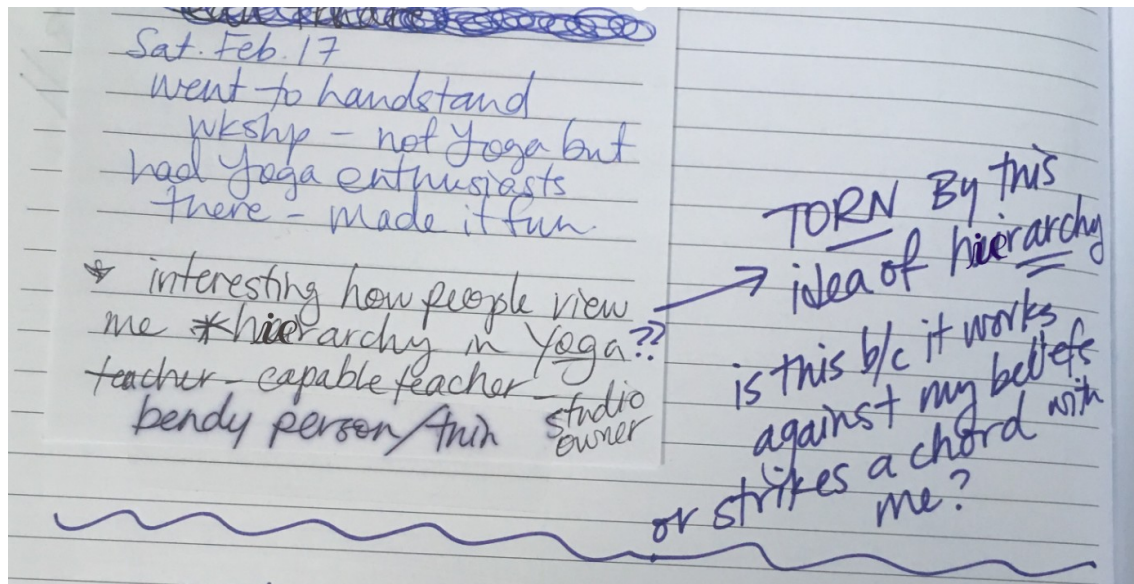 Sat. Feb. 17
went to handstand
wkshp - not Yoga but
had Yoga enthusiasts
there - made it fun.
* interesting how people view
me * hierarchy in Yoga??
teacher - capable teacher -
studio
owner
bendy person/thin
TORN By this
idea of hierarchy
is this b/c it works
against my beliefs
or strikes a chord with
me?